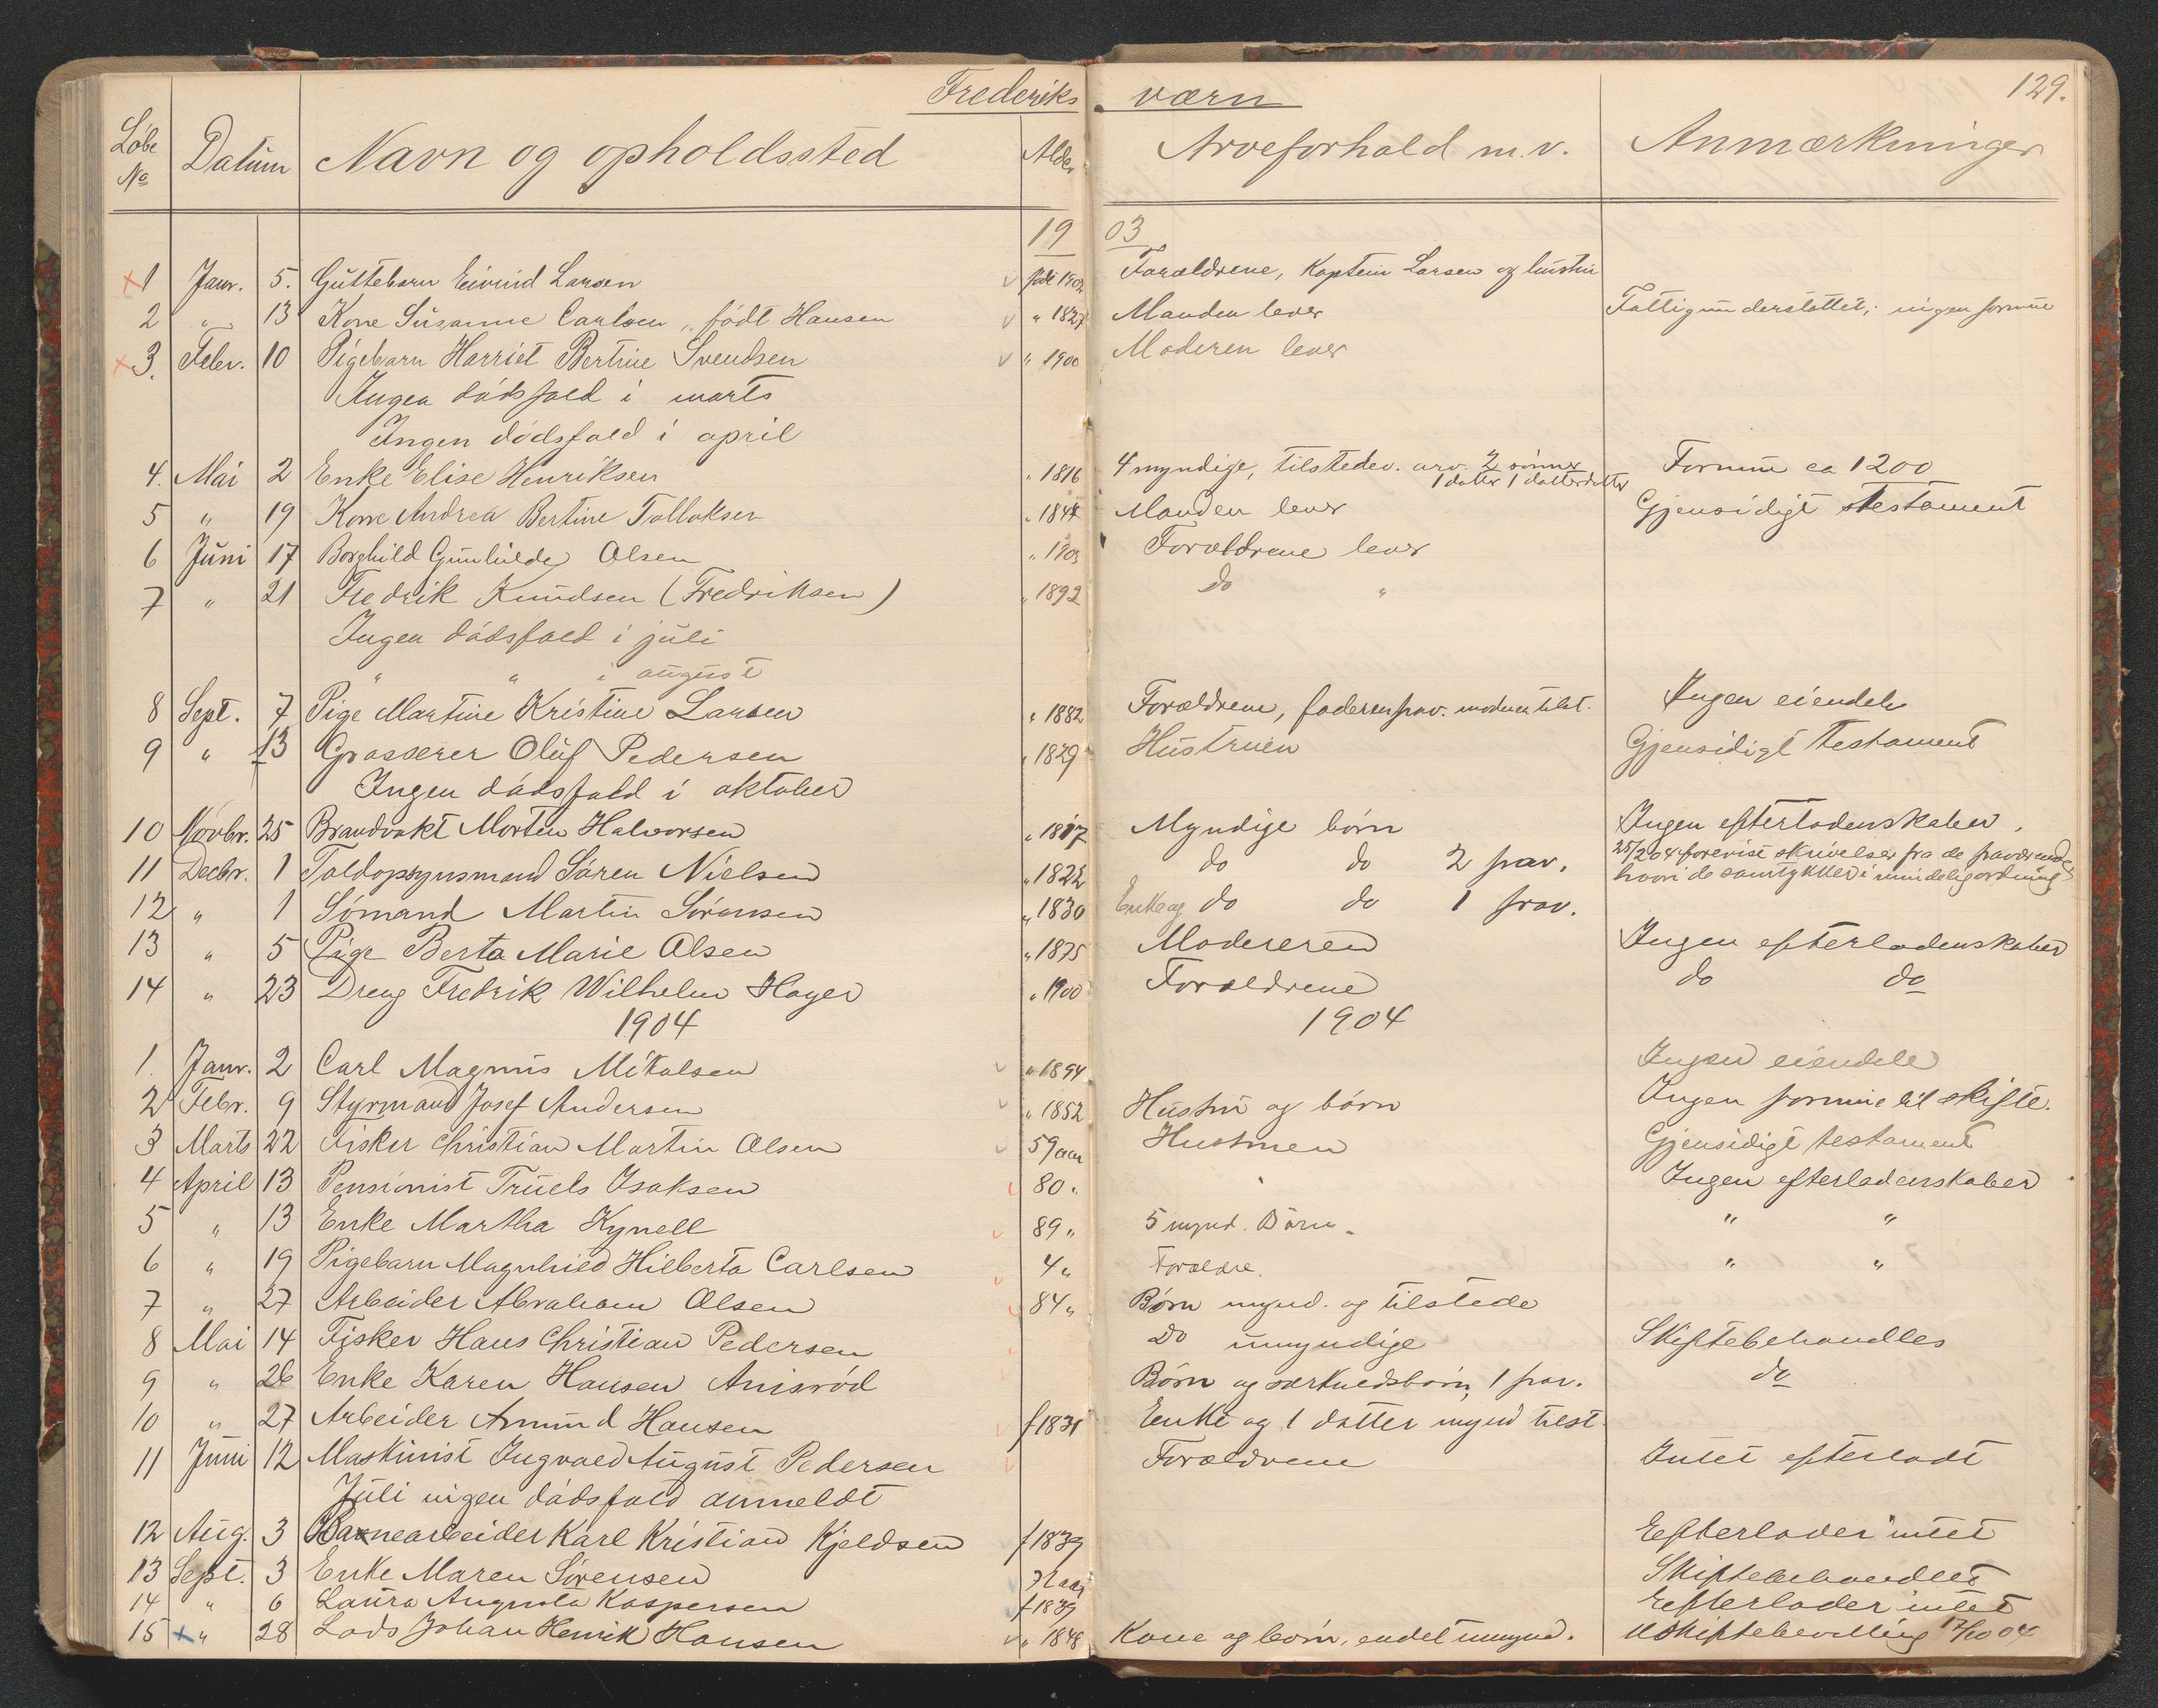 Frederiksværn 129.
Løbe No Datum Navn og opholdssted Alder Arveforhold m.v. Anmærkninger
1903
1 Janr. 5. Guttebarn Eivind Larsen født 1902 Forældrene, Kaptein Larsen og hustru
2 " 13 Kone Susanne Carlsen, født Hansen " 1827 Manden lever Fattigunderstøttet; ingen formue
3. Febr. 10 Pigebarn Harriet Bertine Svendsen " 1900 Moderen lever
Ingen dødsfald i marts
Ingen dødsfald i april
4. Mai 2 Enke Elise Henriksen " 1816 4 myndige, tilstedev. arv. 2 sønner 1 datter 1 datterdatter Formue ca 1200
5 " 19 Kone Andrea Bertine Tollaksen " 1844 Manden lever Gjensidigt Testament
6 Juni 17 Borghild Gunhilde Olsen " 1903 Forældrene lever
7 " 21 Fredrik Knudsen (Fredriksen) " 1892 do "
Ingen dødsfald i juli
" " i august
8 Sept. 7 Pige Martine Kristine Larsen " 1882 Forældrene, faderen frav. moderen tilst. Ingen eiendele
9 " 13 Grosserer Oluf Pedersen " 1829 Hustruen Gjensidigt Testament
Ingen dødsfald i oktober
10 Novbr. 25 Brandvakt Morten Halvorsen " 1817 Myndige børn Ingen efterladenskaber.
11 Decbr. 1 Toldopsynsmand Søren Nielsen " 1822 do do 2 frav. 25/2 04 forevist skrivelser fra de fraværende hvori de samtykker i mindelig ordning
12 " 1 Sømand Martin Sørensen " 1830 Enke og do do 1 frav.
13 " 5 Pige Berta Marie Olsen " 1875 Modereren Ingen efterladenskaber
14 " 23 Dreng Fredrik Wilhelm Hager " 1900 Forældrene do do
1904 1904
1. Janr. 2 Carl Magnus Mikalsen " 1894 Ingen eiendele
2 Febr. 9 Styrmand Josef Andersen " 1852 Hustru og børn Ingen formue til skifte.
3 Marts 22 Fisker Christian Martin Olsen 59 aar Hustruen Gjensidigt testament
4 April 13 Pensionist Truels Isaksen 80 " " Ingen efterladenskaber
5 " 13 Enke Martha Kynell 89 " 5 mynd. Børn. " "
6 " 19 Pigebarn Magnhild Hilberta Carlsen 4 " Forældre. " "
7 " 27 Arbeider Abraham Olsen 84 " Børn mynd. og tilstede
8 Mai 14 Fisker Hans Christian Pedersen Do umyndige Skiftebehandles
9 " 26 Enke Karen Hansen Anisrød Børn og særkuldsbørn, 1 frav. do
10 " 27 Arbeider Amund Hansen f 1831 Enke og 1 datter mynd tilst.
11 Juni 12 Maskinist Ingvald August Pedersen Forældrene Intet efterladt
Juli ingen dødsfald anmeldt
12 Aug. 3 Havnearbeider Karl Kristian Kjeldsen f 1839 Efterlader intet
13 Sept. 3 Enke Maren Sørensen 72 aar Skiftebehandles
14 " 6 Laura Augusta Kaspersen f 1839 Efterlader intet
15 " 28 Lods Johan Henrik Hansen " 1848 Kone og børn, endel umynd. Uskiftebevilling 17/10 04